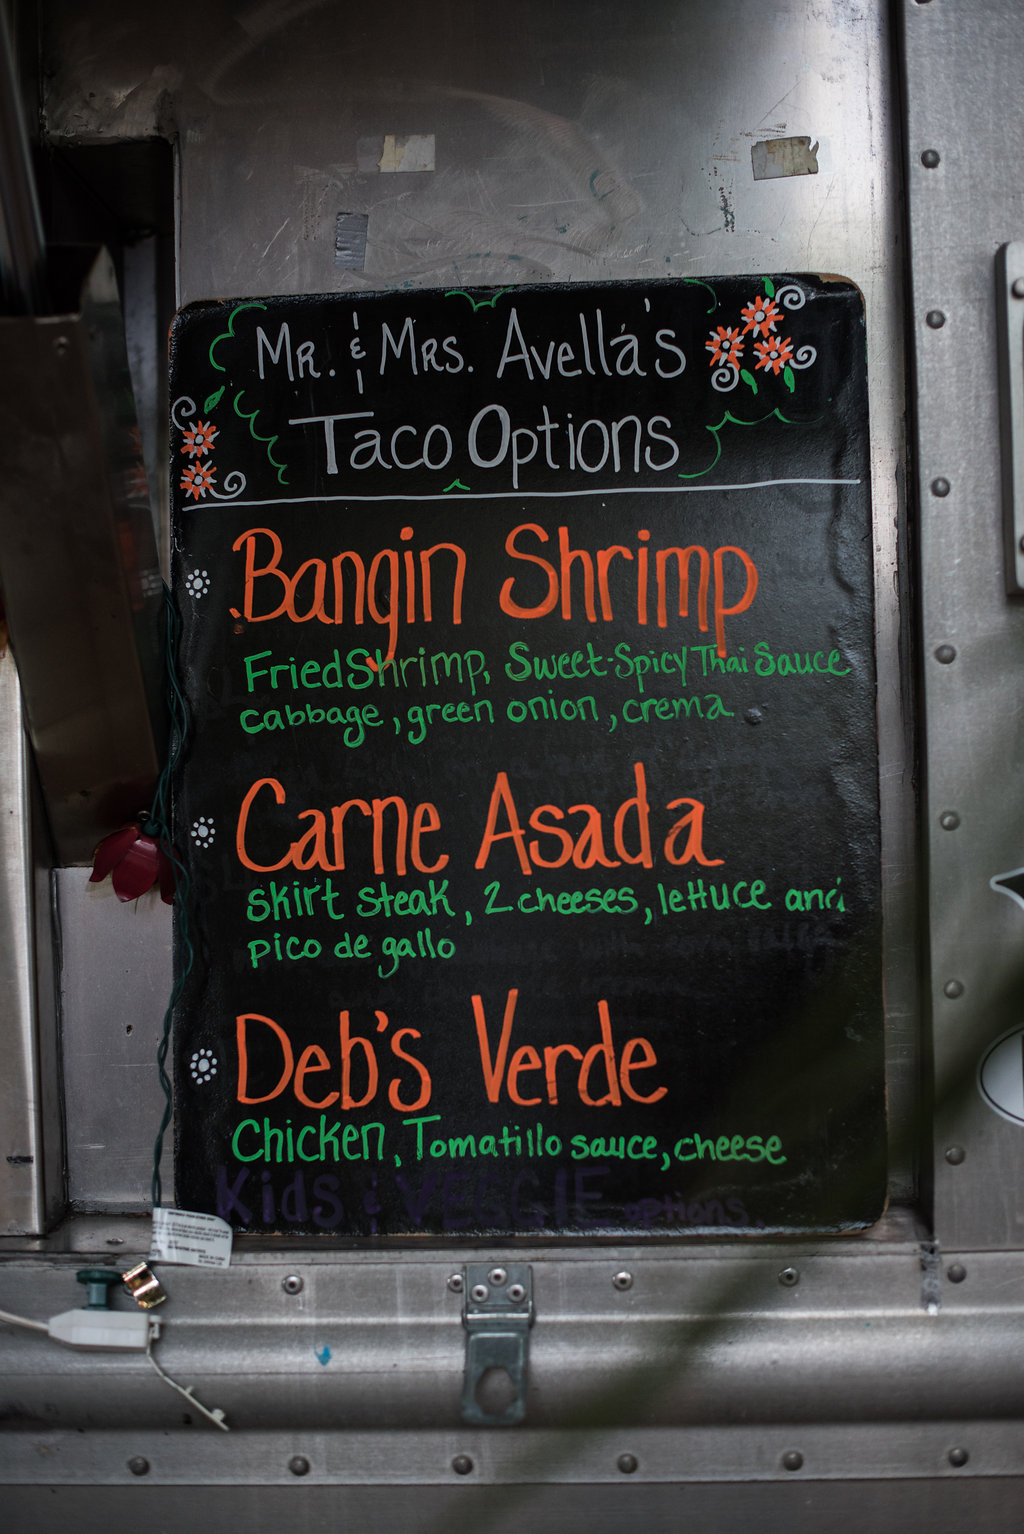 Mr. & Mrs. Avella's
Taco Options
Bangin Shrimp
Fried Shrimp, Sweet-Spicy Thai Sauce
cabbage, green onion, crema
Carne Asada
skirt steak, 2 cheeses, lettuce and
pico de gallo
Deb's Verde
Chicken, Tomatillo sauce, cheese
Kids & VEGGIE options.